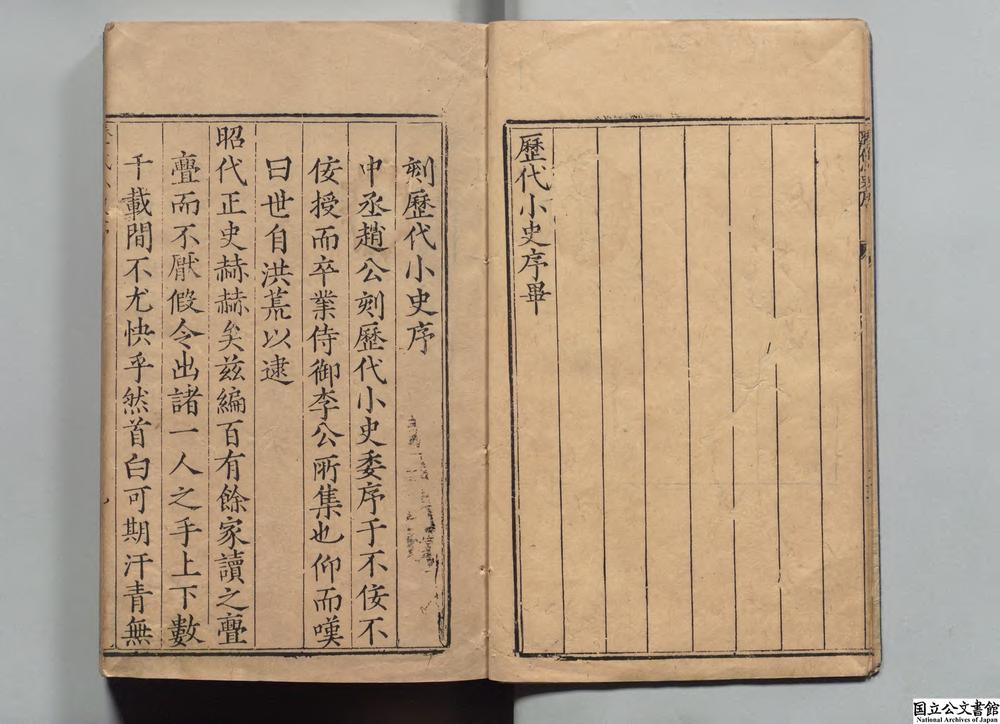 歷代小史序畢
刻歷代小史序
中丞趙公刻歷代小史委序于不佞不
佞授而卒業侍御李公所集也仰而嘆
曰世自洪荒以逮
昭代正史赫赫矣兹編百有餘家讀之亹
亹而不厭假令出諸一人之手上下數
千載間不尤快乎然首白可期汗青無
国立公文書館
National Archives of Japan